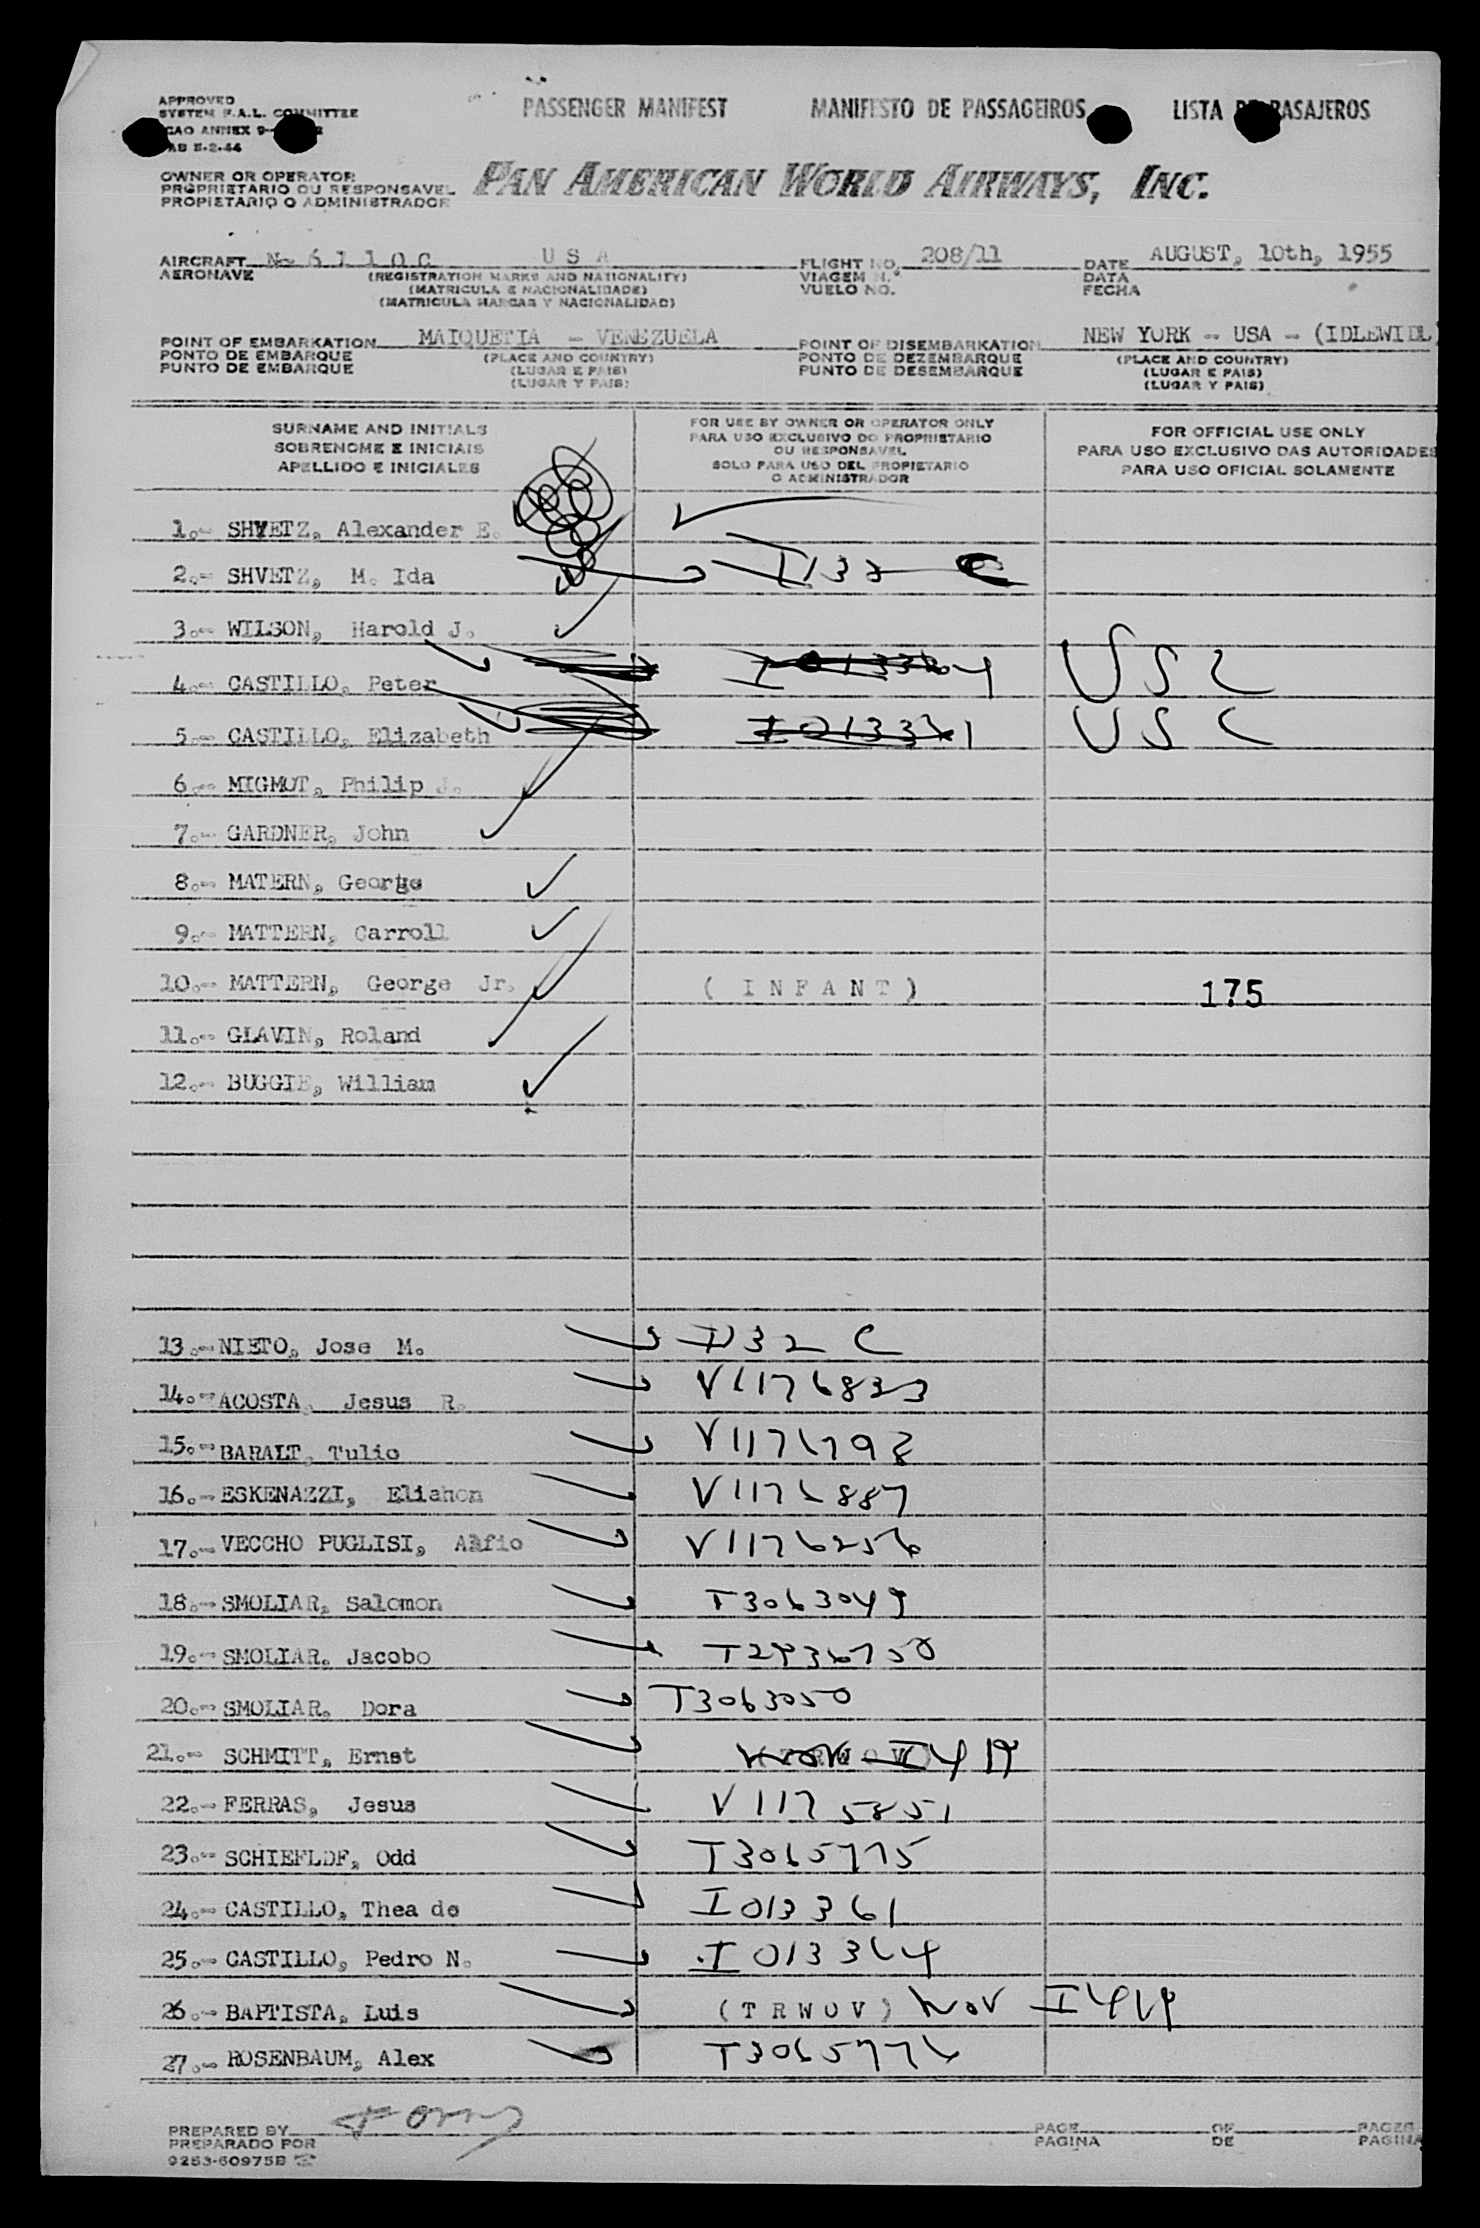 APPROVED
SYSTEM F.A.L. COMMITTEE
ICAO ANNEX 9
PASSENGER MANIFEST MANIFESTO DE PASSAGEIROS LISTA DE PASAJEROS
OWNER OR OPERATOR
PROPRIETARIO OU RESPONSAVEL
PROPIETARIO O ADMINISTRADOR
PAN AMERICAN WORLD AIRWAYS, INC.
AIRCRAFT N- 6 1 1 0 C U S A FLIGHT NO. 208/11 DATE AUGUST, 10th, 1955
AERONAVE (REGISTRATION MARKS AND NATIONALITY) VIAGEM N.º DATA
(MATRICULA E NACIONALIDADE) VUELO NO. FECHA
(MATRICULA MARCAS Y NACIONALIDAD)
POINT OF EMBARKATION MAIQUETIA - VENEZUELA POINT OF DISEMBARKATION NEW YORK - USA - (IDLEWIDL)
PONTO DE EMBARQUE (PLACE AND COUNTRY) PONTO DE DEZEMBARQUE (PLACE AND COUNTRY)
PUNTO DE EMBARQUE (LUGAR E PAIS) PUNTO DE DESEMBARQUE (LUGAR E PAIS)
(LUGAR Y PAIS) (LUGAR Y PAIS)
SURNAME AND INITIALS
SOBRENOME E INICIAIS
APELLIDO E INICIALES
FOR USE BY OWNER OR OPERATOR ONLY
PARA USO EXCLUSIVO DO PROPRIETARIO
OU RESPONSAVEL
SOLO PARA USO DEL PROPIETARIO
O ADMINISTRADOR
FOR OFFICIAL USE ONLY
PARA USO EXCLUSIVO DAS AUTORIDADES
PARA USO OFICIAL SOLAMENTE
1.- SHVETZ, Alexander E.
2.- SHVETZ, M. Ida I132
3.- WILSON, Harold J.
4.- CASTILLO, Peter I 013364 USC
5.- CASTILLO, Elizabeth I 013361 USC
6.- MIGMOT, Philip J.
7.- GARDNER, John
8.- MATERN, George
9.- MATTERN, Carroll
10.- MATTERN, George Jr. ( I N F A N T ) 175
11.- GLAVIN, Roland
12.- BUGGIE, William
13.- NIETO, Jose M. I132 C
14.- ACOSTA, Jesus R. V1176833
15.- BARALT, Tulio V1176798
16.- ESKENAZZI, Eliahon V1176887
17.- VECCHO PUGLISI, Alfio V1176256
18.- SMOLIAR, Salomon T3063049
19.- SMOLIAR, Jacobo T2936750
20.- SMOLIAR, Dora T3063050
21.- SCHMITT, Ernst
22.- FERRAS, Jesus V1175851
23.- SCHIEFLDF, Odd T3065775
24.- CASTILLO, Thea de I 013361
25.- CASTILLO, Pedro N. I 013364
26.- BAPTISTA, Luis ( T R W O V ) WOV I419
27.- ROSENBAUM, Alex T3065776
PREPARED BY PAGE OF PAGES
PREPARADO POR PAGINA DE PAGINA
9253-60975B